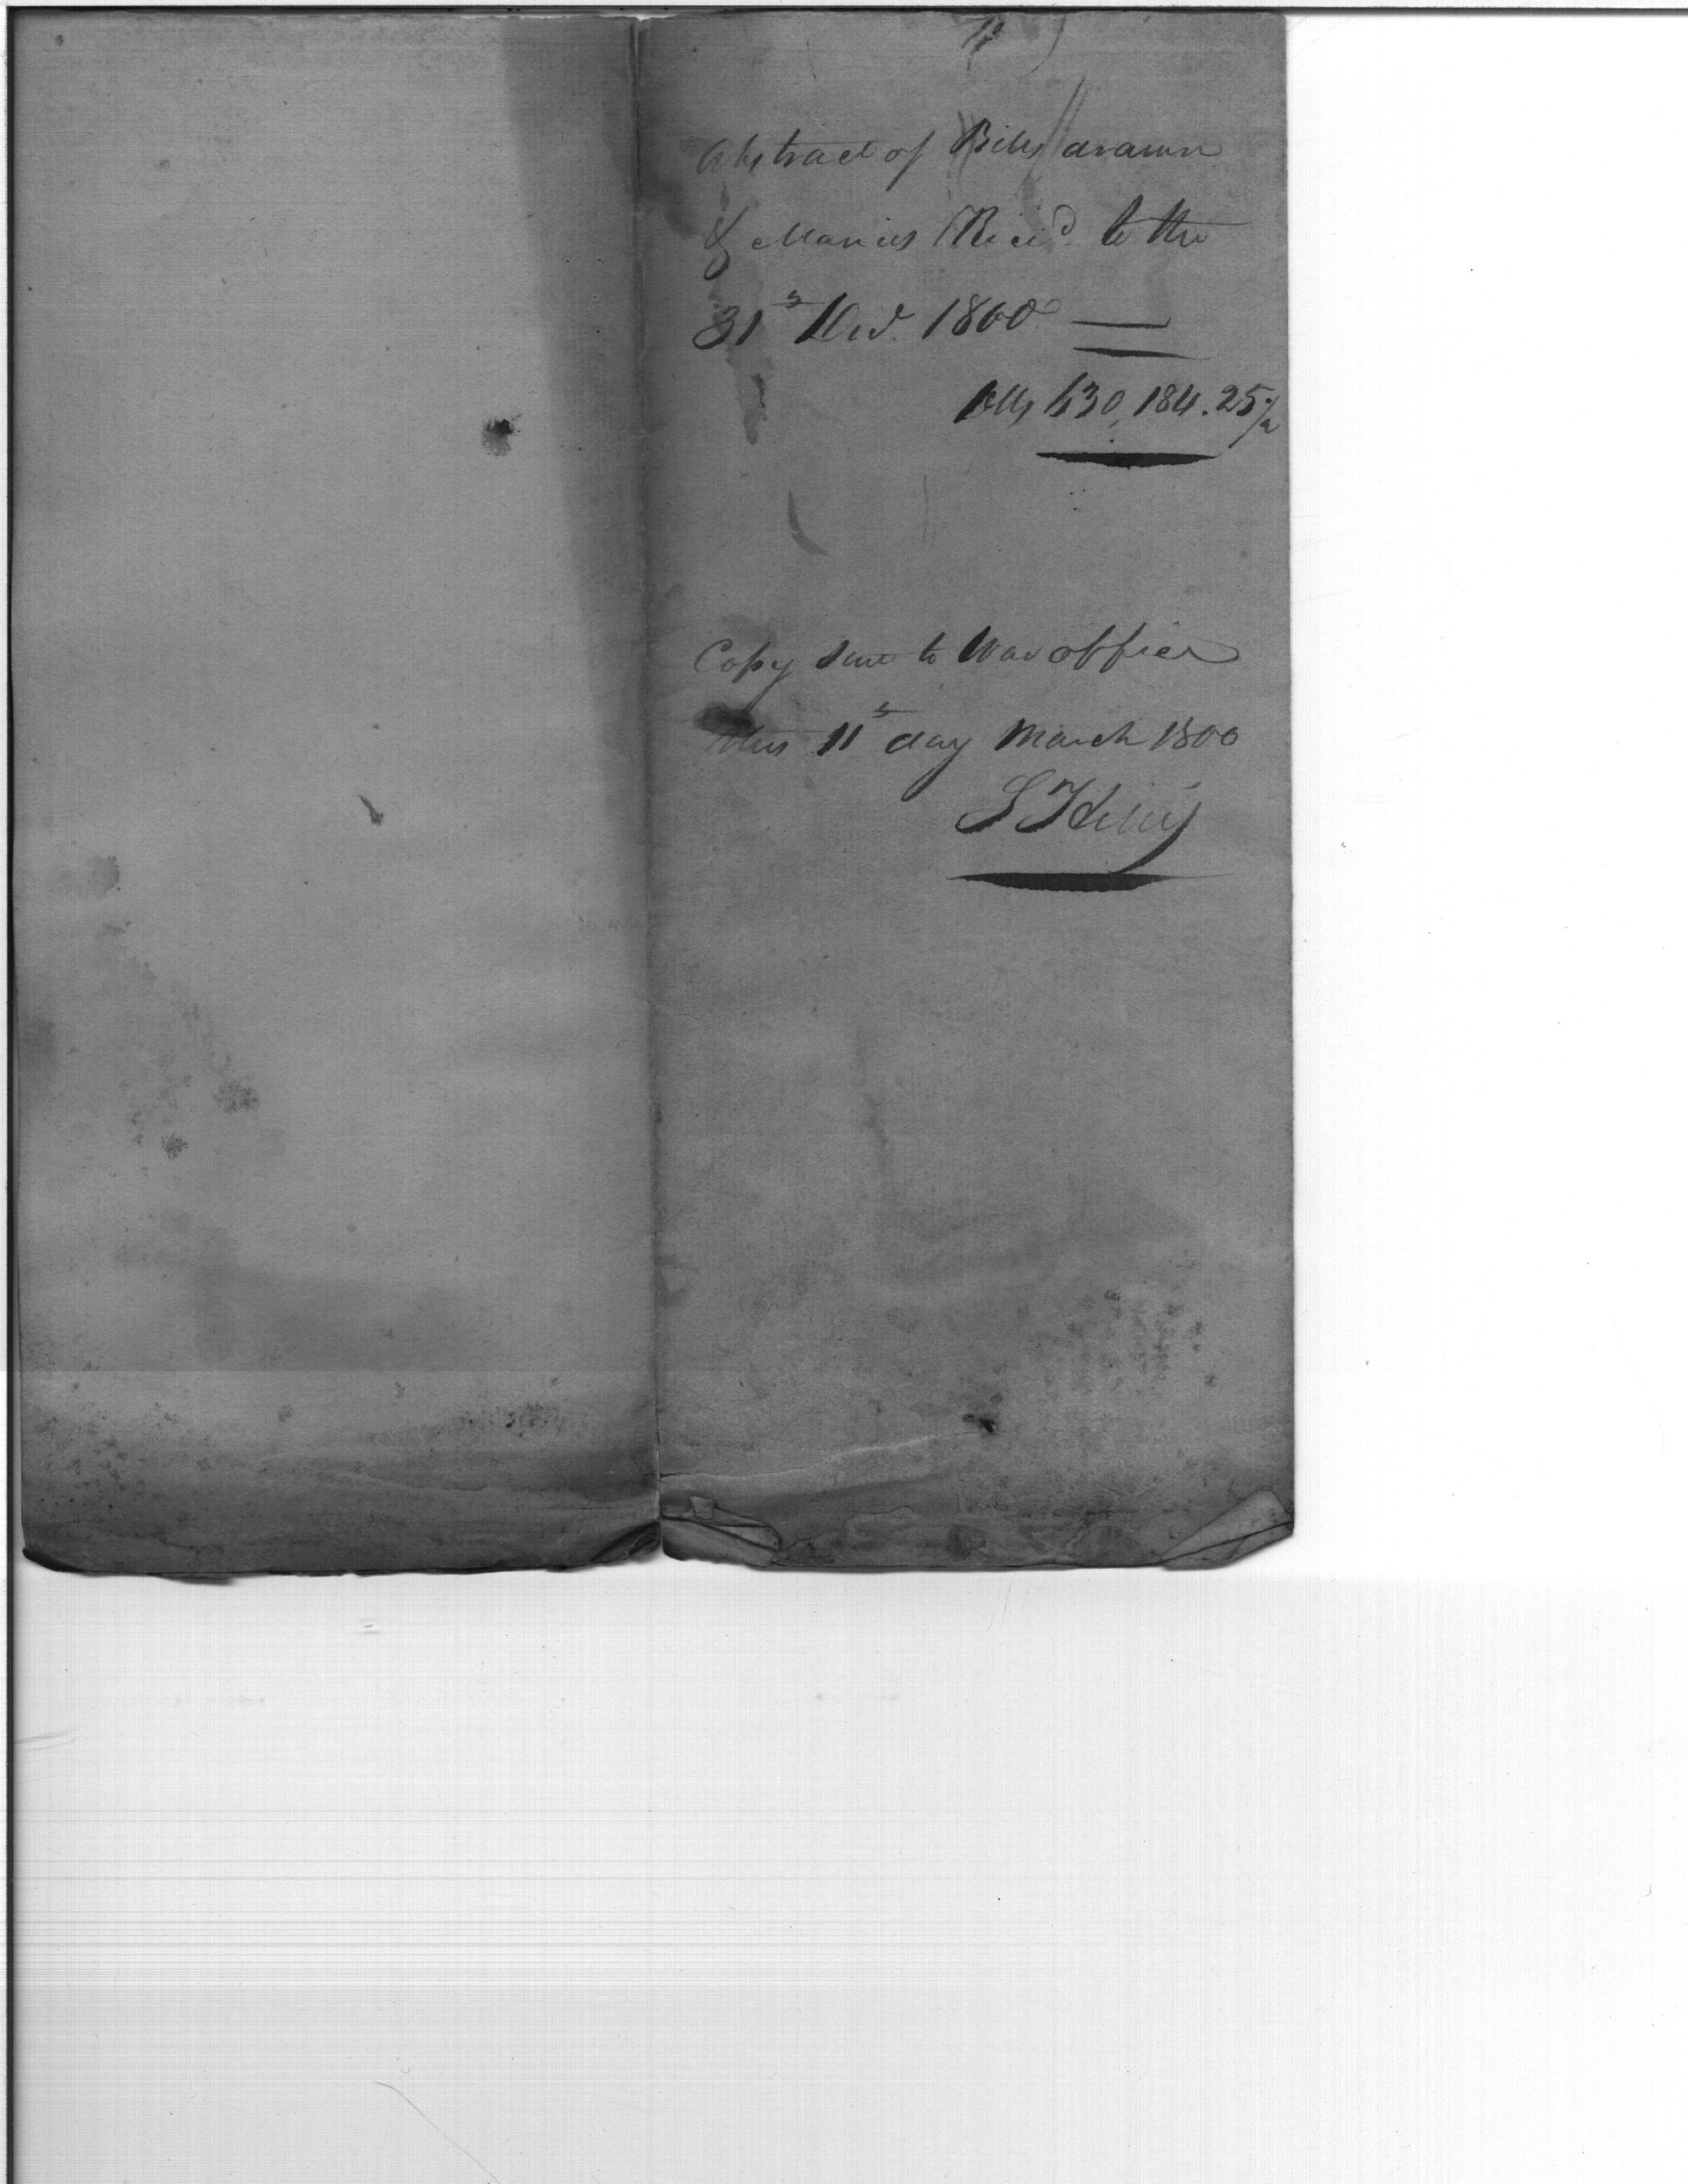 Abstract of Bills drawn
& Monies Rec'd. to the
31st Decr. 1800
Dlls 630,184.25½
Copy sent to War office
this 11th day March 1800
S H